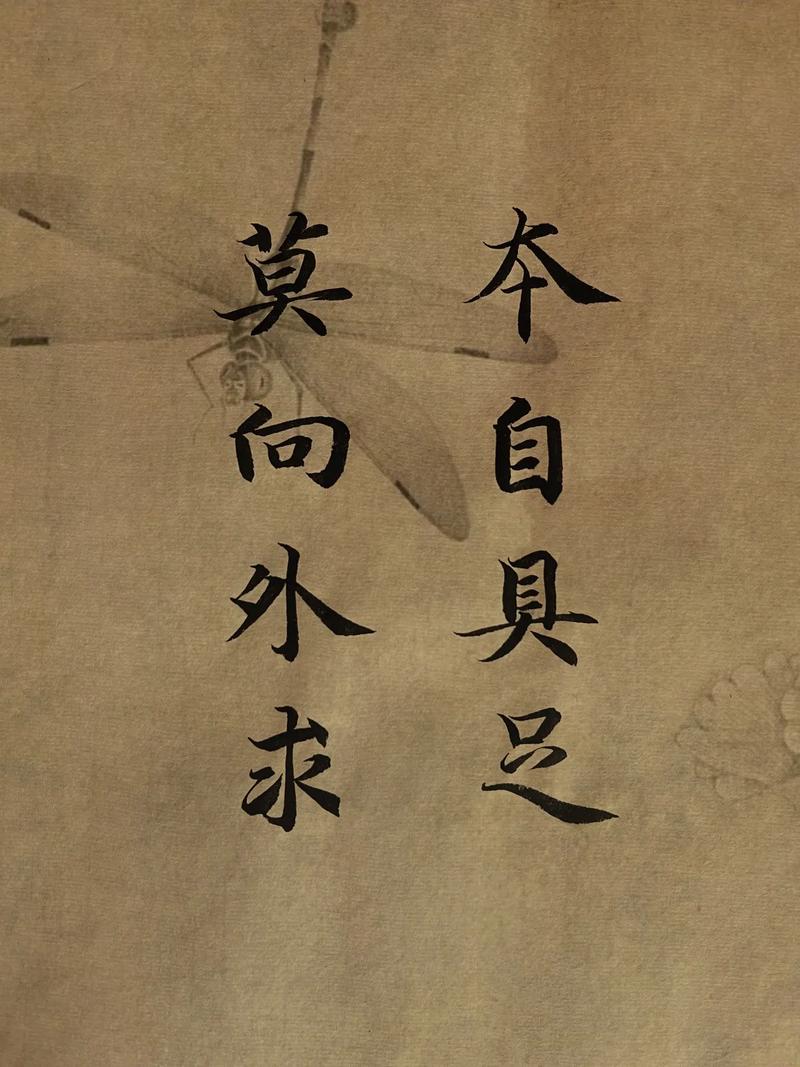 本自具足
莫向外求